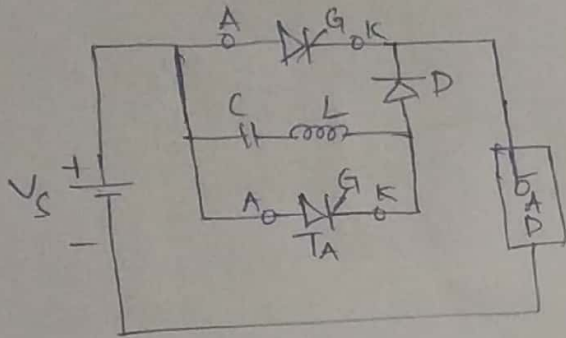 A G K
D
C L
+
Vs
-
A G K
TA
LOAD